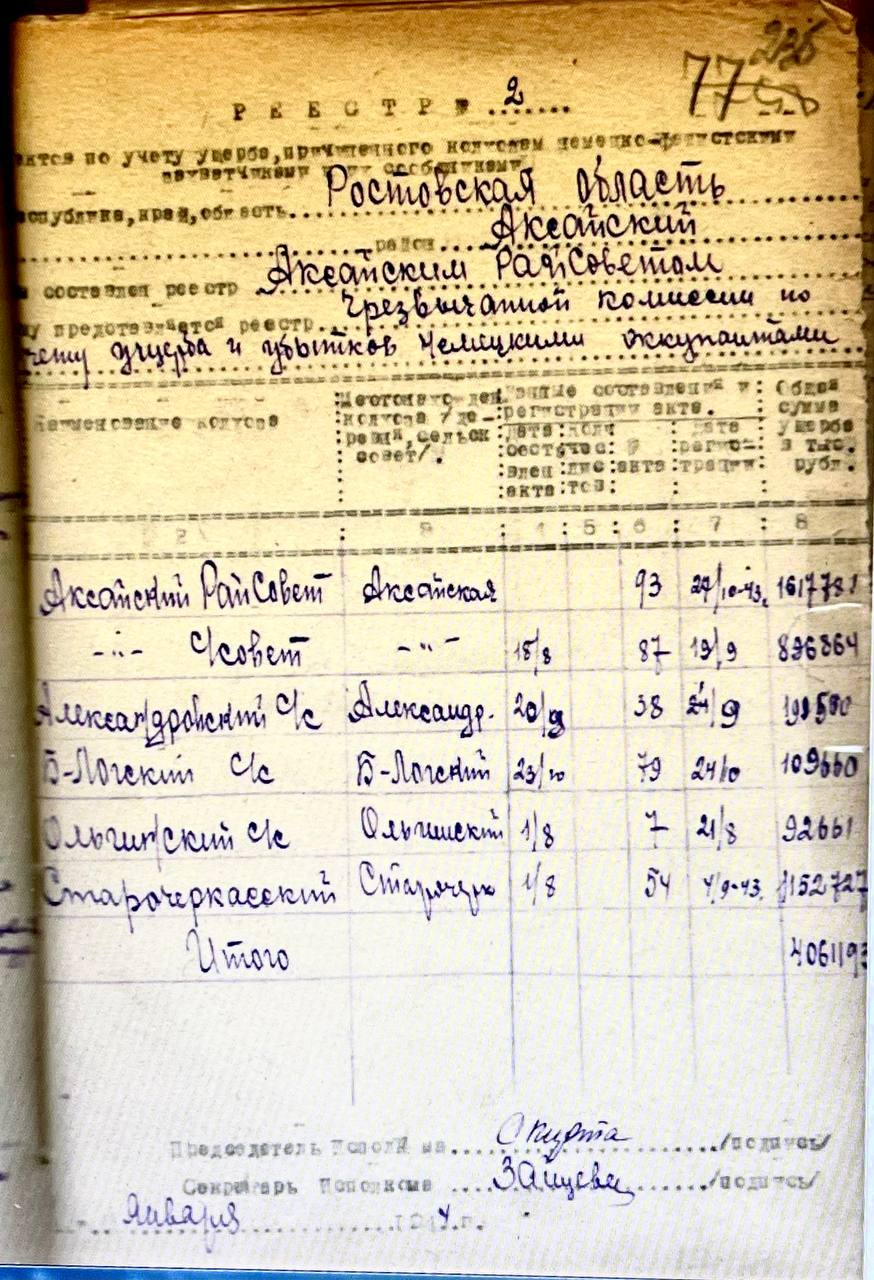 77
Р Е Е С Т Р № ..2.....
актов по учету ущерба, причиненного колхозам немецко-фашистскими
захватчиками и их сообщниками
республика, край, область..Ростовская область
район....Аксайский
составлен реестр Аксайским РайСоветом
представляется реестр..Чрезвычайной комиссии по
учету ущерба и убытков немецкими оккупантами
Наименование колхоза : Местонахожден. колхоза /де-ревня, сельсовет/. : Данные составления и регистрации акта. : Общая сумма ущерба в тыс. рубл.
дата составлен акта : коли чес листов : № акта : дата регис-трации
2 : 3 : 4 : 5 : 6 : 7 : 8
Аксайский РайСовет Аксайская 93 27/10-43. 1617781
-"- С/совет -"- 18/8 87 19/9 896864
Александровский С/с Александр. 20/9 38 21/9
Б-Логский С/с Б-Логский 23/10 79 24/10 109660
Ольгинский С/с Ольгинский 1/8 7 21/8 92661
Старочеркасский 1/8 54 4/9-43. 1152727
Итого 406119
Председатель Исполкома............/подпись/
Секретарь Исполкома ....Зайцева....../подпись/
Января ............1944.г.